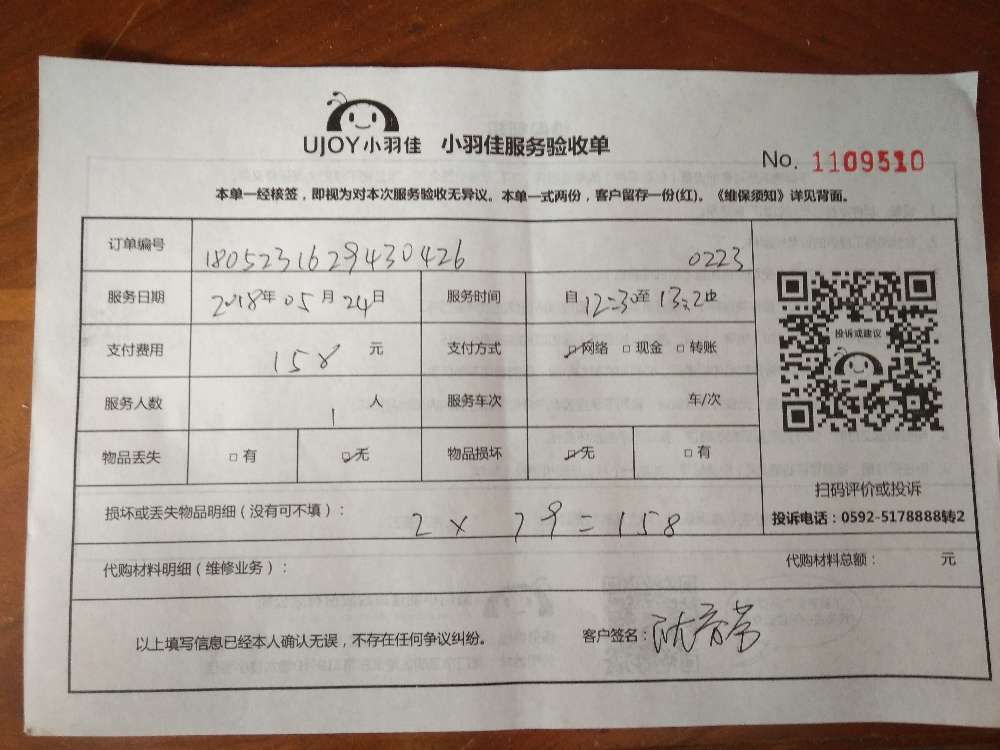 UJOY小羽佳 小羽佳服务验收单
No. 1109510
本单一经核签，即视为对本次服务验收无异议。本单一式两份，客户留存一份(红)。《维保须知》详见背面。
订单编号 1805231629430426 0223
服务日期 2018年05月24日 服务时间 自12:30至
支付费用 158 元 支付方式 ☑网络 □现金 □转账
服务人数 1 人 服务车次 车/次
物品丢失 □有 ☑无 物品损坏 ☑无 □有
投诉或建议
扫码评价或投诉
投诉电话：0592-5178888转2
损坏或丢失物品明细（没有可不填）： 2×79=158
代购材料明细（维修业务）： 代购材料总额： 元
以上填写信息已经本人确认无误，不存在任何争议纠纷。 客户签名：